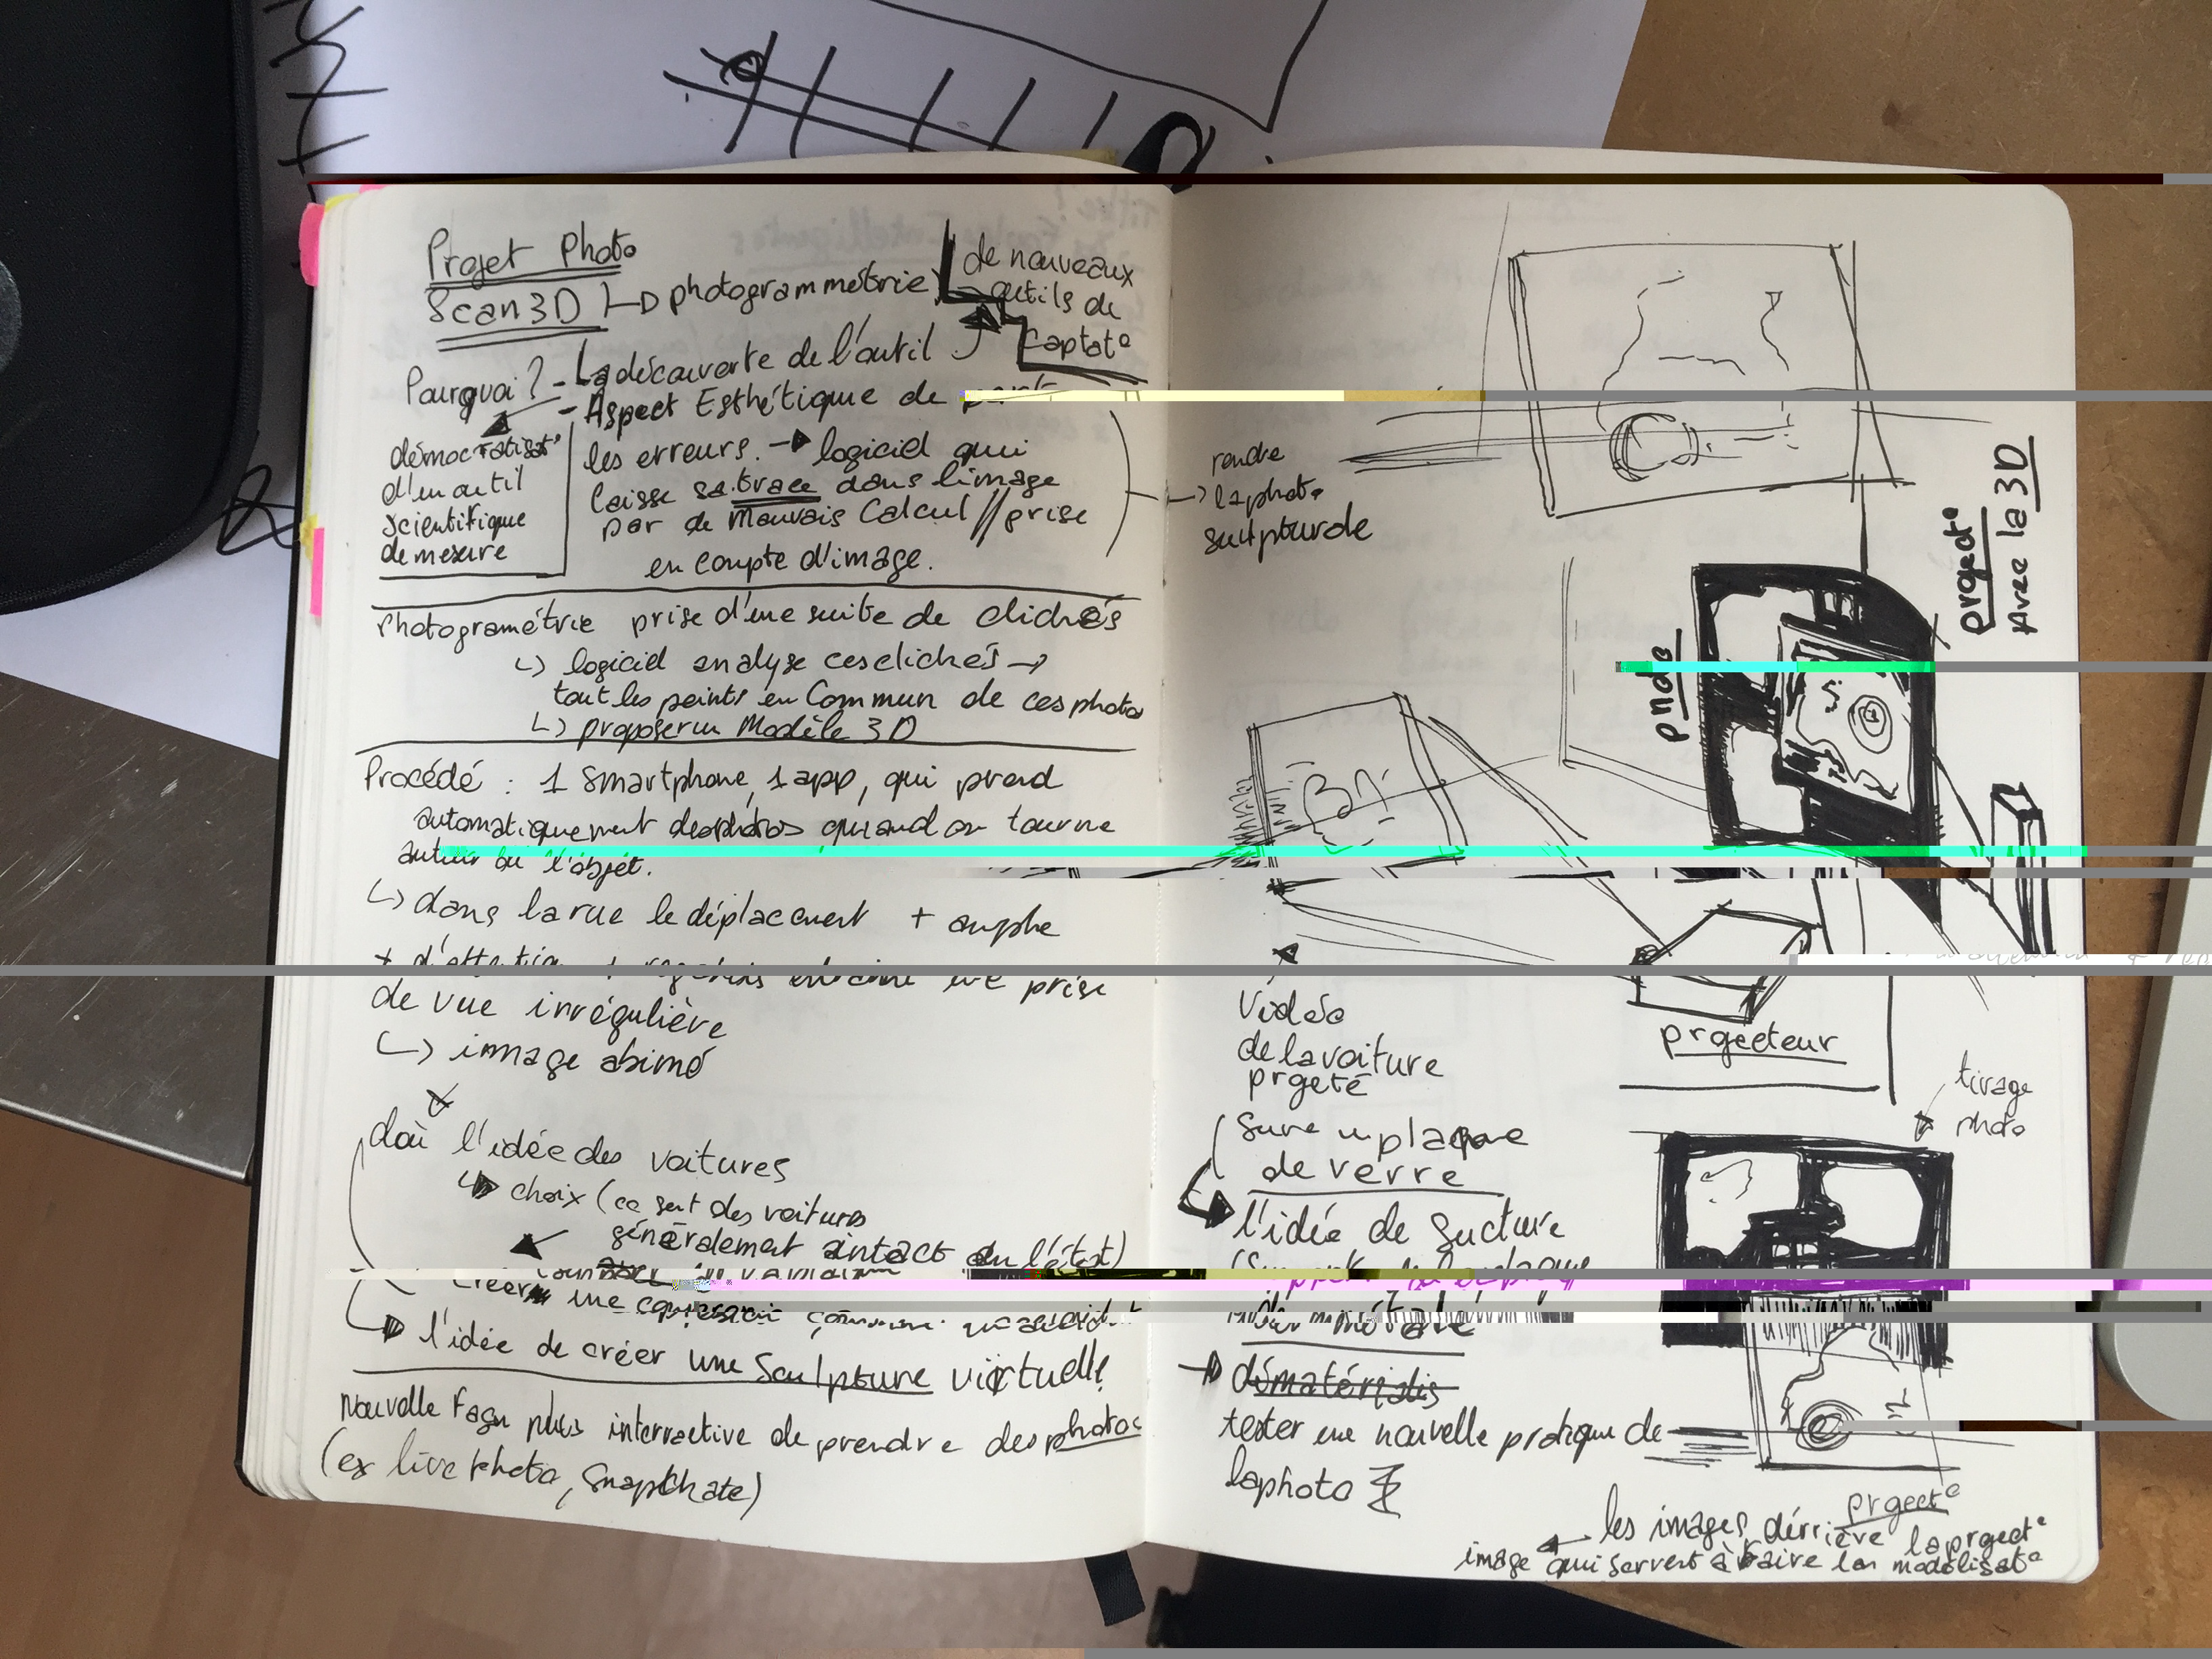 Projet Photo
Scan3D → photogrammétrie
de nouveaux
outils de
Captat°
Pourquoi ? - La découverte de l'outil
- Aspect Esthétique de
démocratisat°
d'un outil
scientifique
de mesure
les erreurs. → logiciel qui
laisse sa trace dans l'image
par de Mauvais Calcul // prise
en compte d'image.
Photogramétrie prise d'une suite de clichés
↳ logiciel analyse ces clichés →
tout les points en Commun de ces photos
↳ proposer un Modèle 3D
Procédé : 1 Smartphone, 1 app, qui prend
automatiquement des photos quand on tourne
autour de l'objet.
↳ dans la rue le déplacement +
+ d'attention + prise
de vue irrégulière
↳ image abimé
d'où l'idée des voitures
↳ choix (ce sont des voitures
généralement intact de l'état)
créer une
↳ l'idée de créer une Sculpture virtuelle
Nouvelle Façon plus interractive de prendre des photos
(ex live photo, Snapchate)
rendre
→ la photo
sculpturale
project°
Avec la 3D
photo
projecteur
Vidéo
de la voiture
projeté
Sure un plaque
de verre
l'idée de
tirage
photo
→ dématérialis
tester une nouvelle pratique de
la photo
project°
les images dérrière la project°
image qui servent à faire la modélisat°